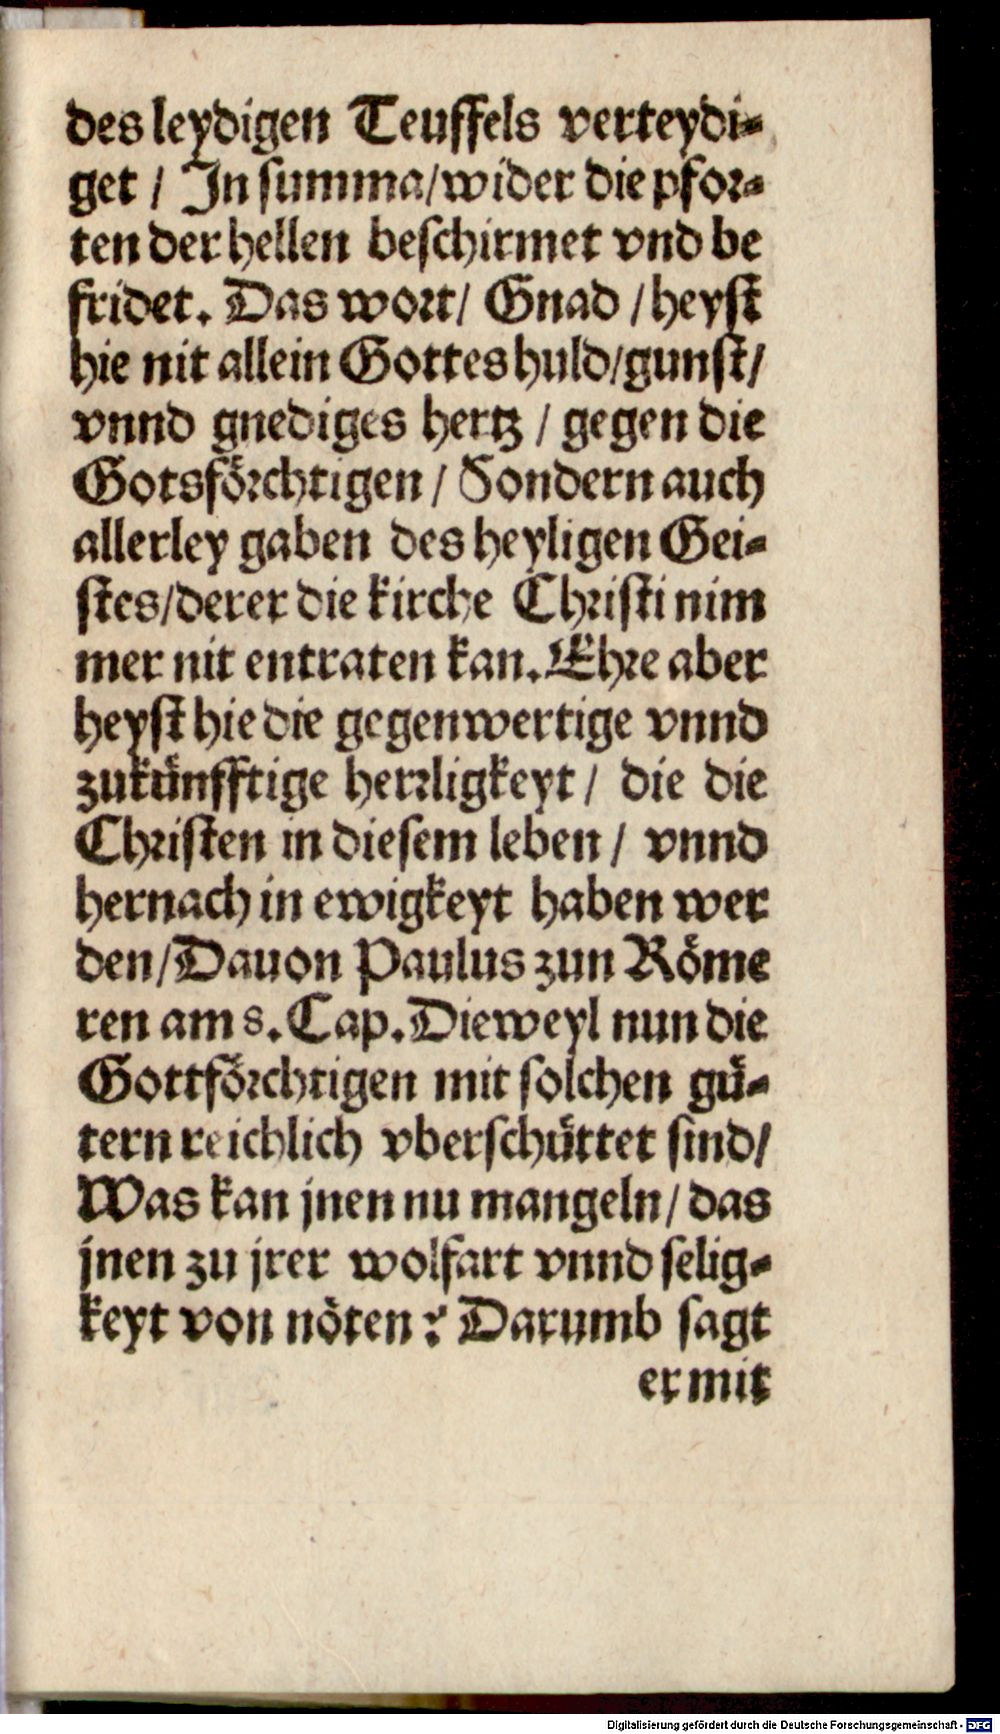 des leydigen Teuffels verteydi⸗
get / In summa/ wider die pfor⸗
ten der hellen beschirmet vnd be
fridet. Das wort/ Gnad / heyst
hie nit allein Gottes huld/ gunst/
vnnd gnediges hertz / gegen die
Gotsförchtigen / Sondern auch
allerley gaben des heyligen Gei⸗
stes/ derer die kirche Christi nim
mer nit entraten kan. Ehre aber
heyst hie die gegenwertige vnnd
zukünfftige herrligkeyt / die die
Christen in diesem leben / vnnd
hernach in ewigkeyt haben wer
den/ Dauon Paulus zun Röme
ren am 8. Cap. Dieweyl nun die
Gottförchtigen mit solchen gü⸗
tern reichlich vberschüttet sind/
Was kan jnen nu mangeln/ das
jnen zu jrer wolfart vnnd selig⸗
keyt von nöten? Darumb sagt
er mit
Digitalisierung gefördert durch die Deutsche Forschungsgemeinschaft - DFG